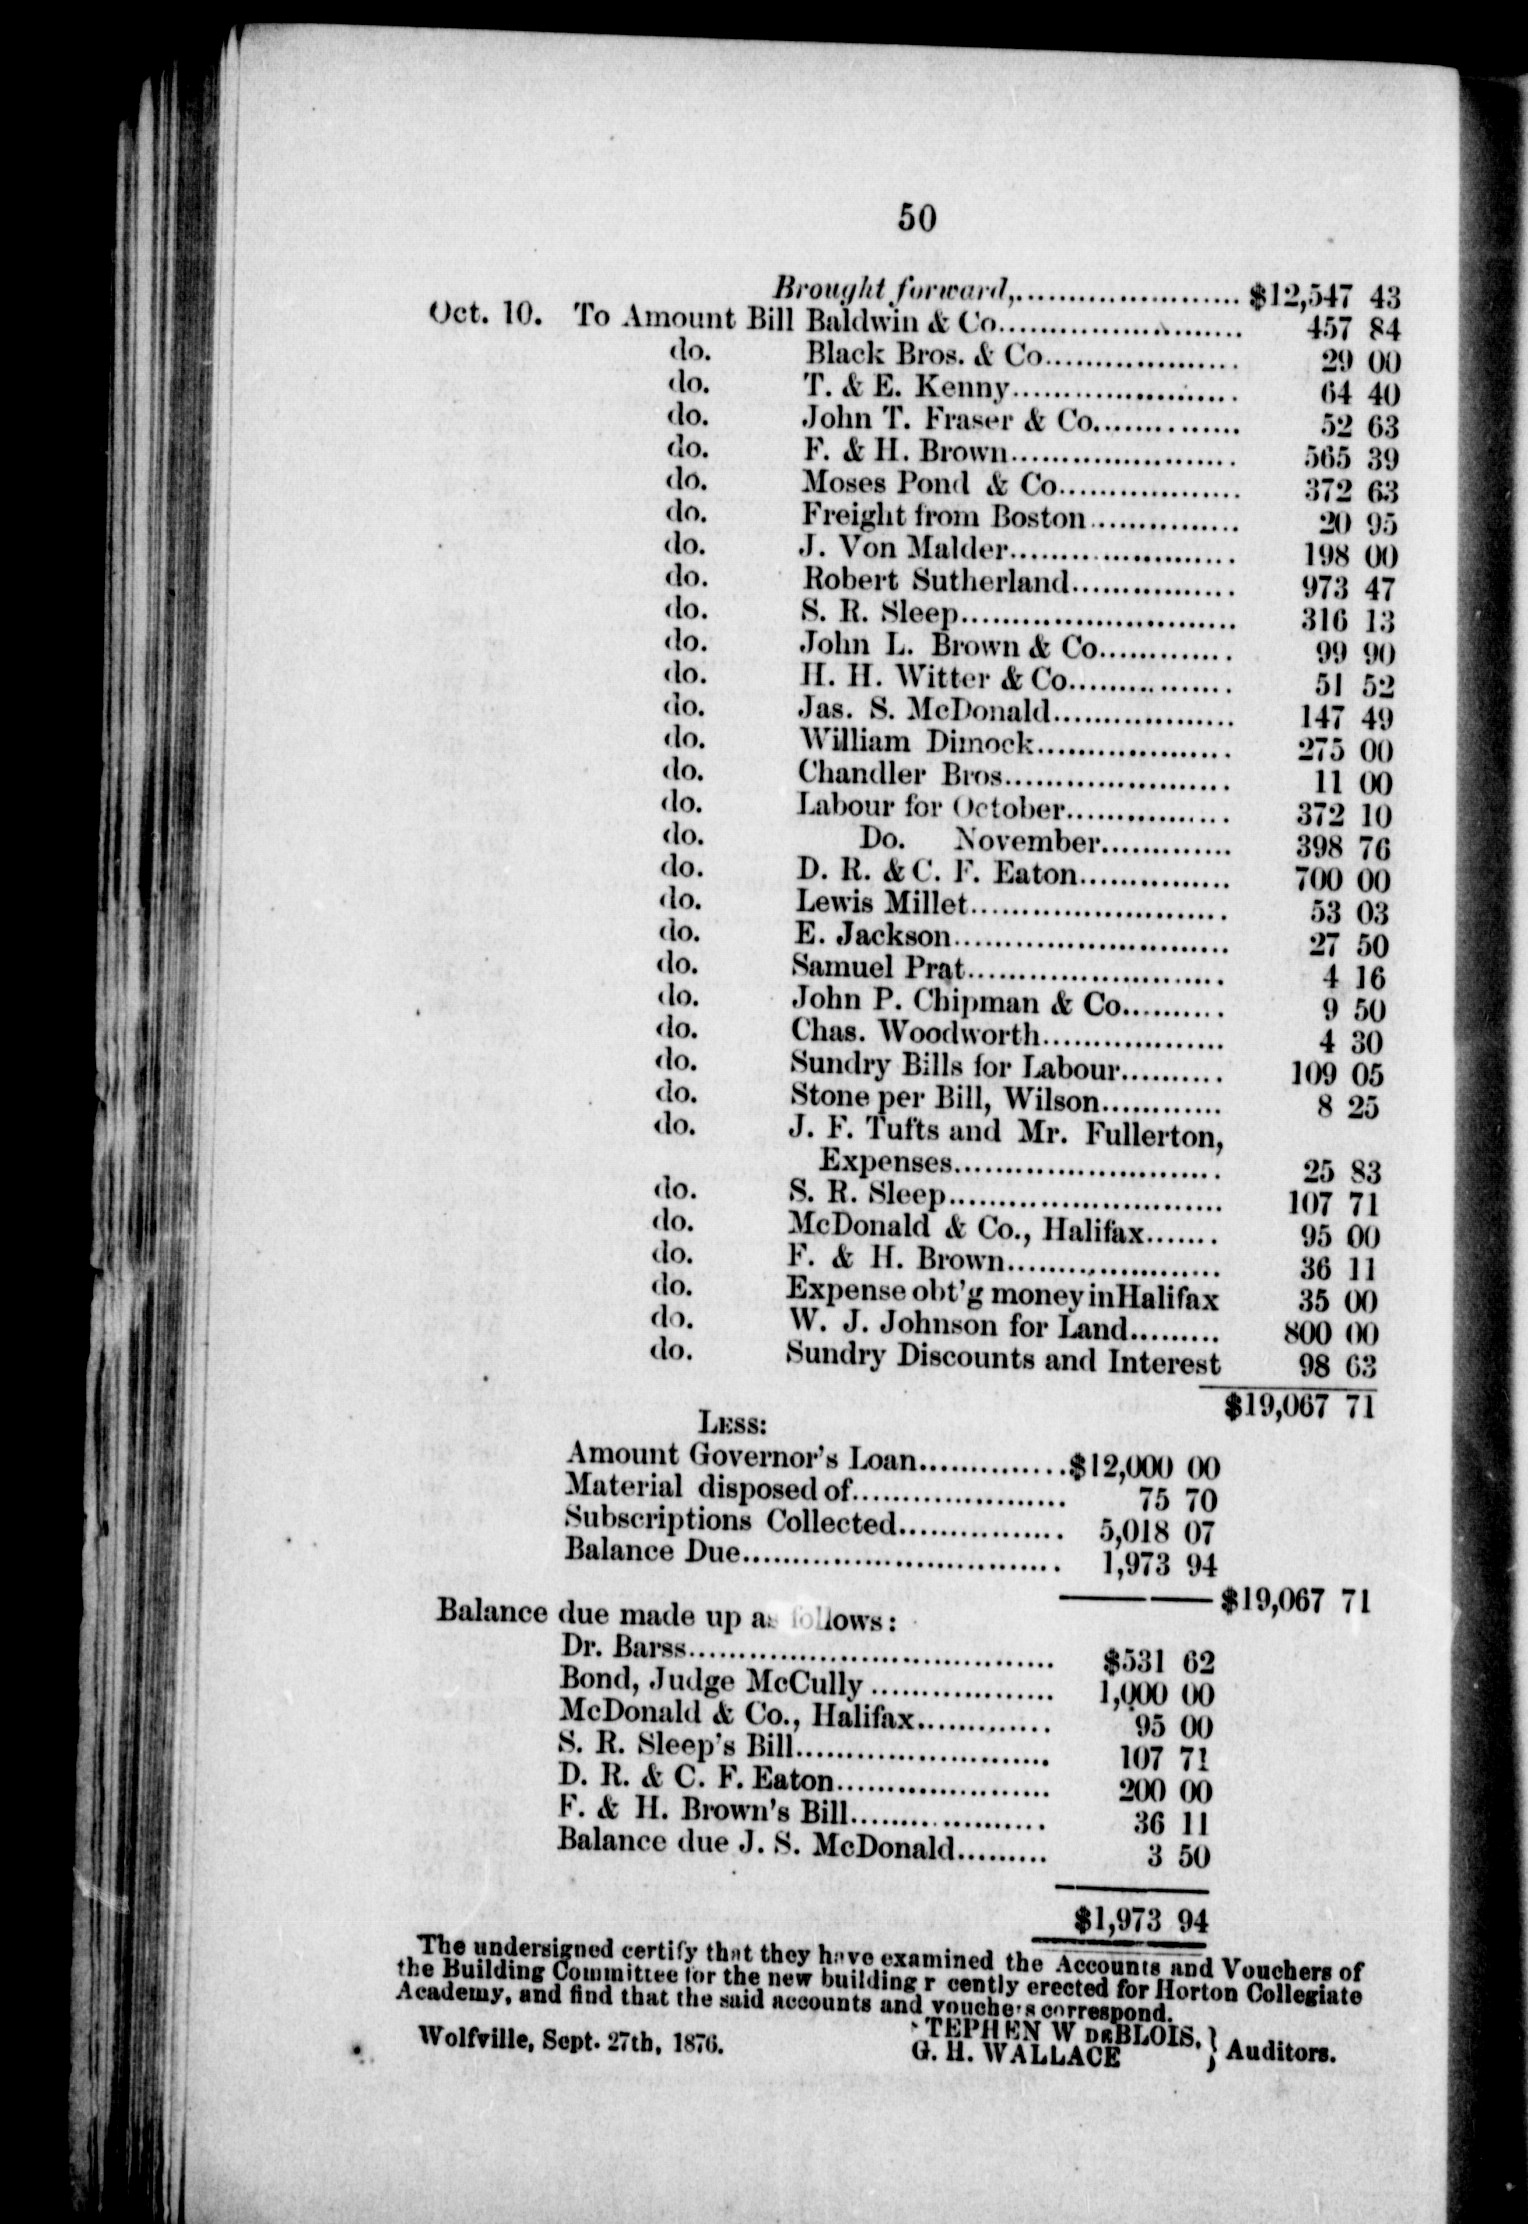 50
Brought forward,........................$12,547 43
Oct. 10. To Amount Bill Baldwin & Co......................... 457 84
do. Black Bros. & Co................... 29 00
do. T. & E. Kenny...................... 64 40
do. John T. Fraser & Co.............. 52 63
do. F. & H. Brown...................... 565 39
do. Moses Pond & Co.................. 372 63
do. Freight from Boston............... 20 95
do. J. Von Malder...................... 198 00
do. Robert Sutherland................ 973 47
do. S. R. Sleep........................... 316 13
do. John L. Brown & Co............. 99 90
do. H. H. Witter & Co................ 51 52
do. Jas. S. McDonald.................. 147 49
do. William Dimock................... 275 00
do. Chandler Bros...................... 11 00
do. Labour for October................ 372 10
do. Do. November............. 398 76
do. D. R. & C. F. Eaton............... 700 00
do. Lewis Millet......................... 53 03
do. E. Jackson........................... 27 50
do. Samuel Prat......................... 4 16
do. John P. Chipman & Co.......... 9 50
do. Chas. Woodworth.................. 4 30
do. Sundry Bills for Labour.......... 109 05
do. Stone per Bill, Wilson............ 8 25
do. J. F. Tufts and Mr. Fullerton,
Expenses.......................... 25 83
do. S. R. Sleep........................... 107 71
do. McDonald & Co., Halifax....... 95 00
do. F. & H. Brown..................... 36 11
do. Expense obt'g money in Halifax 35 00
do. W. J. Johnson for Land......... 800 00
do. Sundry Discounts and Interest 98 63
$19,067 71
LESS:
Amount Governor's Loan..............$12,000 00
Material disposed of..................... 75 70
Subscriptions Collected................ 5,018 07
Balance Due................................ 1,973 94
$19,067 71
Balance due made up as follows:
Dr. Barss.................................... $531 62
Bond, Judge McCully .................. 1,000 00
McDonald & Co., Halifax............. 95 00
S. R. Sleep's Bill......................... 107 71
D. R. & C. F. Eaton..................... 200 00
F. & H. Brown's Bill................... 36 11
Balance due J. S. McDonald......... 3 50
$1,973 94
The undersigned certify that they have examined the Accounts and Vouchers of
the Building Committee for the new building r cently erected for Horton Collegiate
Academy, and find that the said accounts and vouchers correspond.
STEPHEN W DEBLOIS, }
Wolfville, Sept. 27th, 1876. G. H. WALLACE } Auditors.